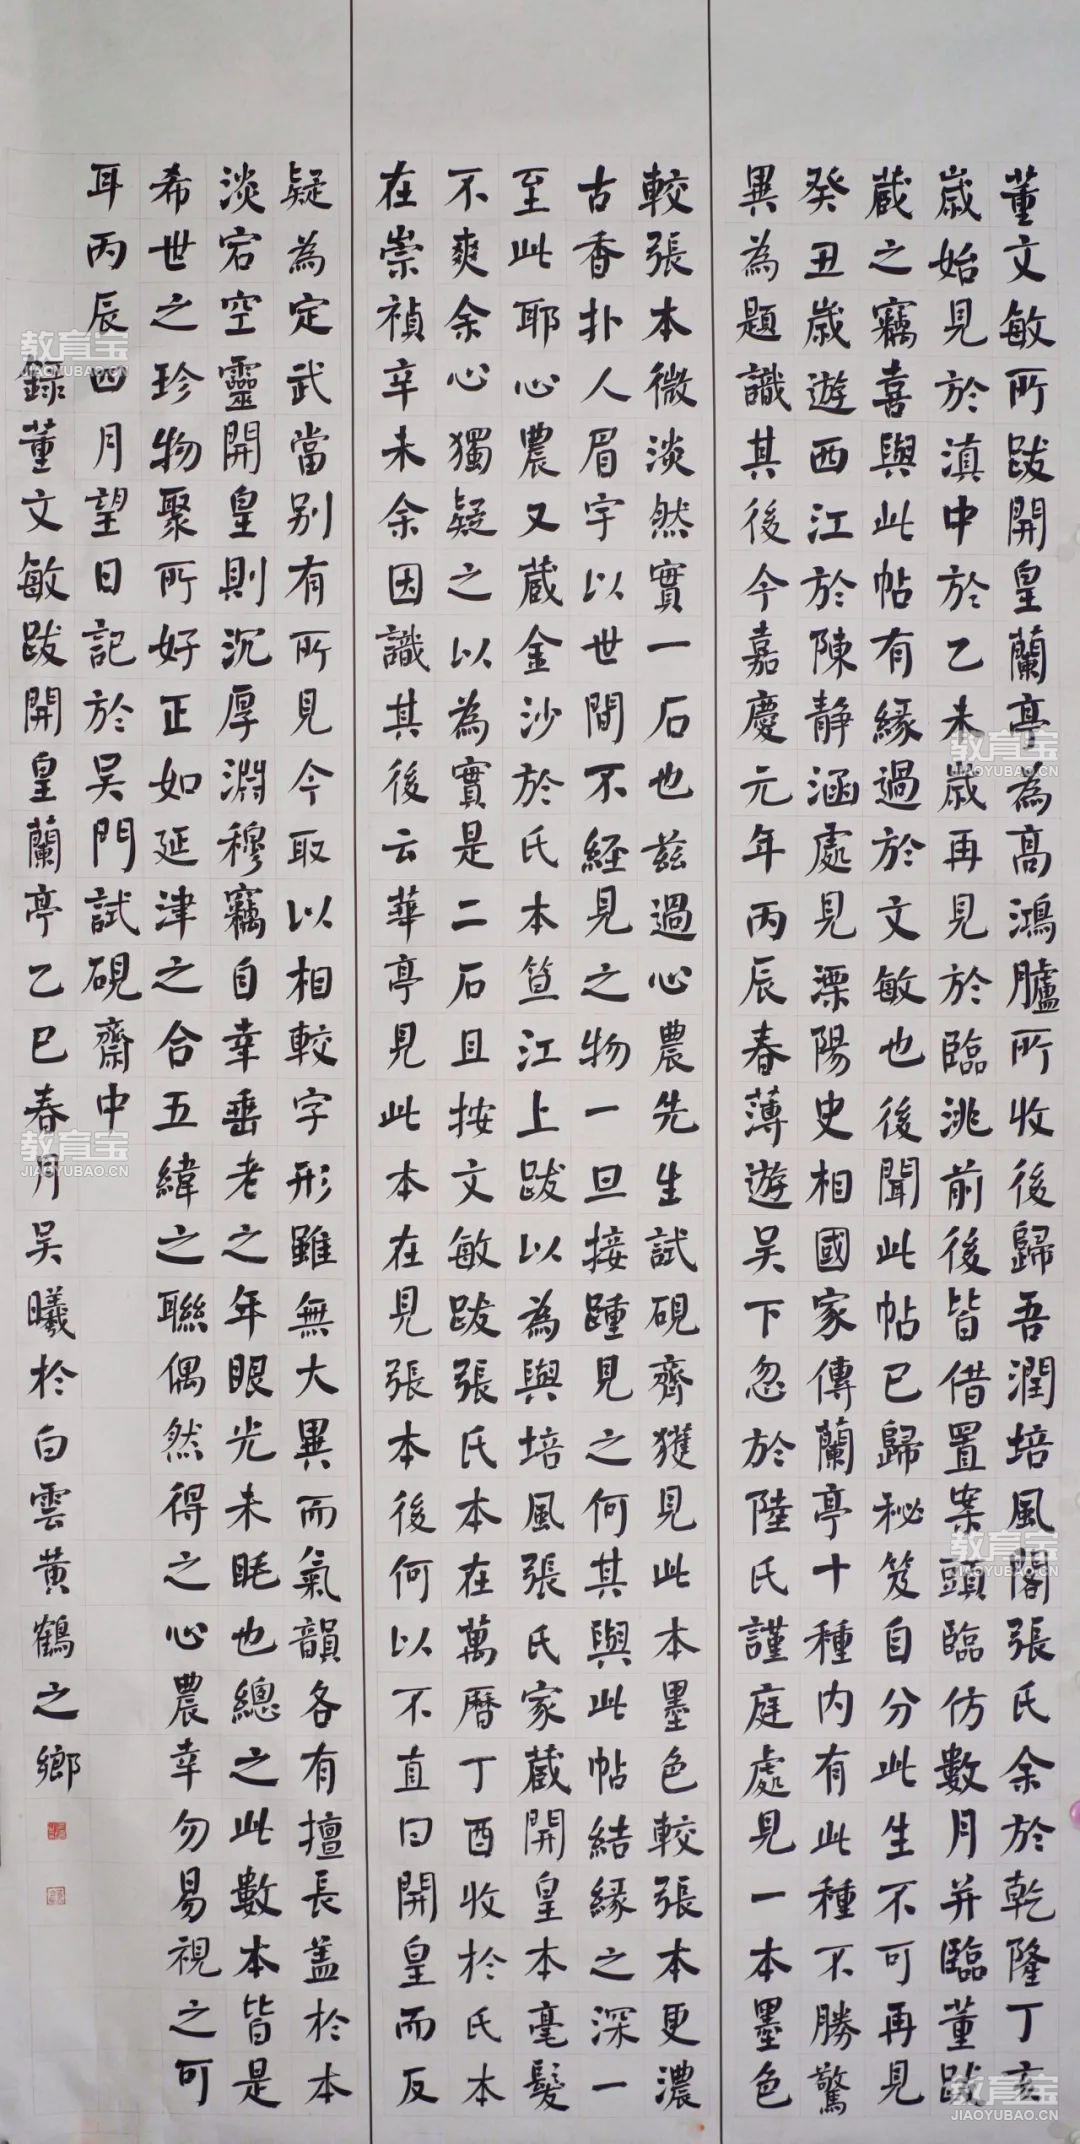 董文敏所跋開皇蘭亭為高鴻臚所收後歸吾潤培風閣張氏余於乾隆丁亥
歲始見於滇中於乙未歲再見於臨洮前後皆借置案頭臨仿數月并臨董跋
蔵之竊喜與此帖有緣過於文敏也後聞此帖已歸秘笈自分此生不可再見
癸丑歲遊西江於陳静涵處見溧陽史相國家傳蘭亭十種内有此種不勝驚
異為題識其後今嘉慶元年丙辰春薄遊吴下忽於陸氏謹庭處見一本墨色
較張本微淡然實一石也兹過心農先生試硯齊獲見此本墨色較張本更濃
古香扑人眉宇以世間不経見之物一旦接踵見之何其與此帖結緣之深一
至此耶心農又蔵金沙於氏本笪江上跋以為與培風張氏家蔵開皇本毫髮
不爽余心獨疑之以為實是二石且按文敏跋張氏本在萬曆丁酉收於氏本
在崇禎辛未余因識其後云華亭見此本在見張本後何以不直曰開皇而反
疑為定武當别有所見今取以相較字形雖無大異而氣韻各有擅長盖於本
淡宕空靈開皇則沉厚淵穆竊自幸垂老之年眼光未眊也總之此數本皆是
希世之珍物聚所好正如延津之合五緯之聯偶然得之心農幸勿易視之可
耳丙辰四月望日記於吴門試硯齋中
録董文敏跋開皇蘭亭乙巳春月吴曦於白雲黄鶴之鄉
教育宝
JIAOYUBAO.CN
教育宝
JIAOYUBAO.CN
教育宝
JIAOYUBAO.CN
教育宝
JIAOYUBAO.CN
教育宝
JIAOYUBAO.CN